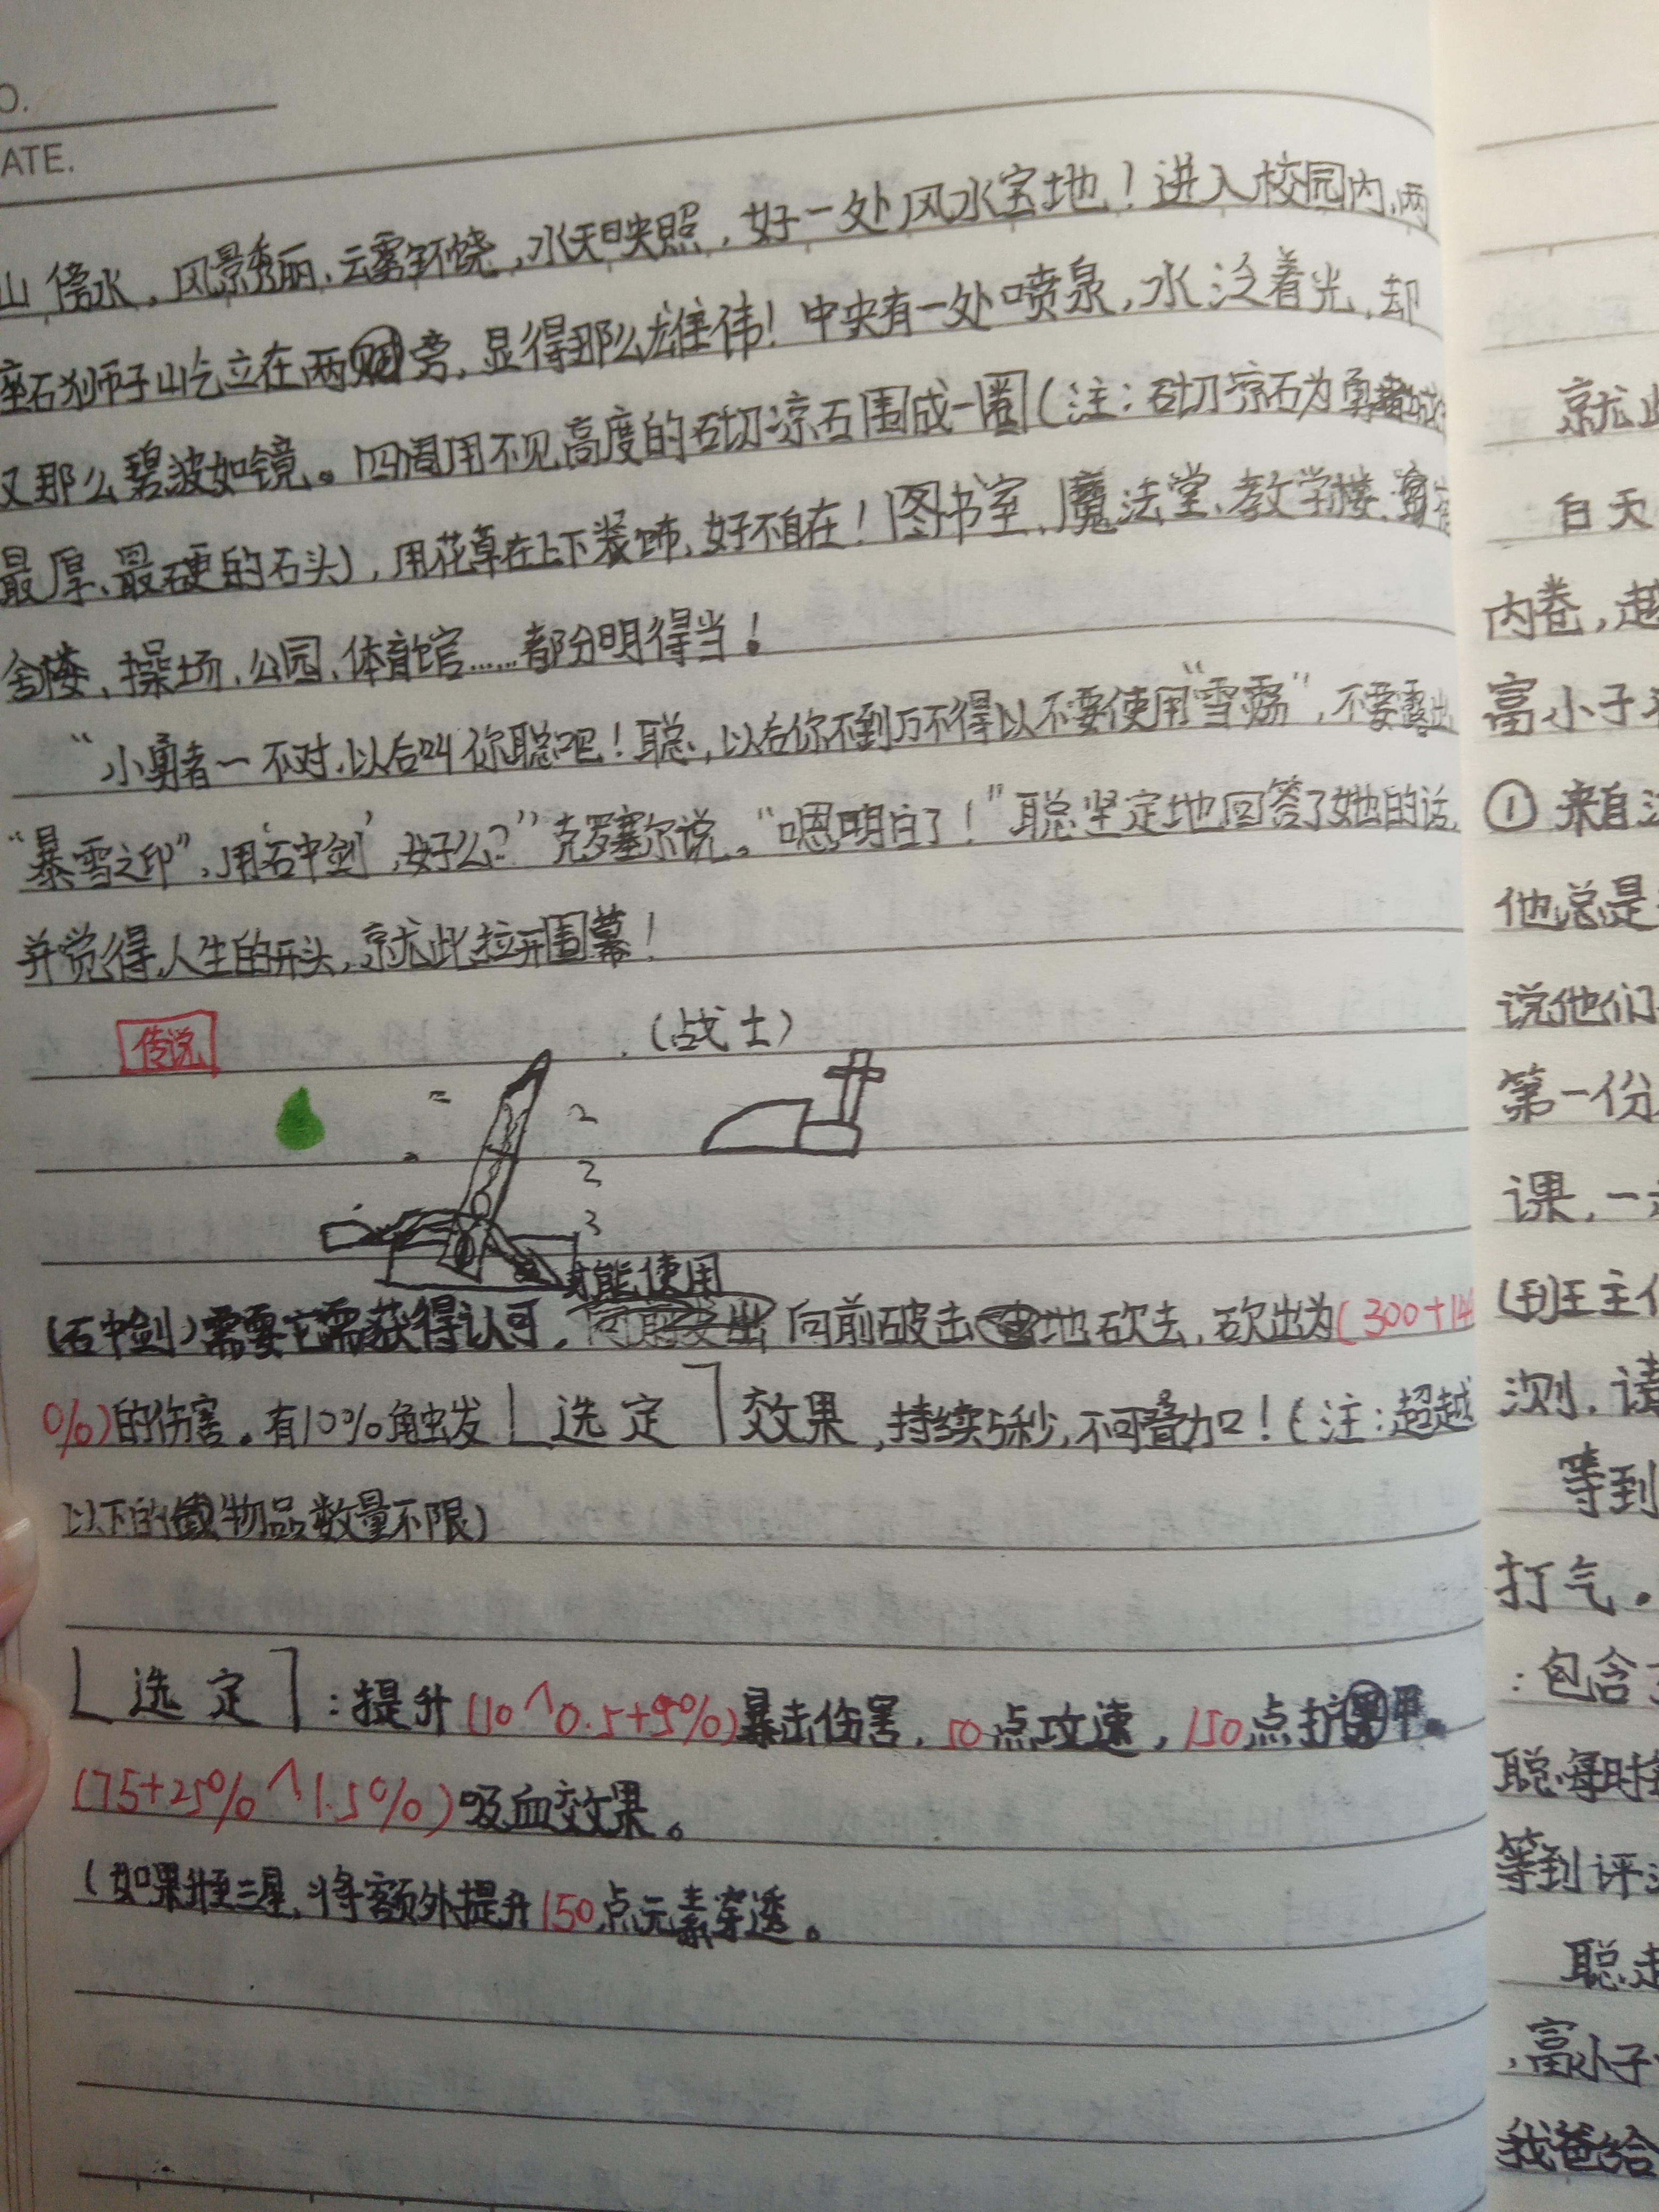 O.
ATE.
山傍水，风景秀丽、云雾环饶，水天映照，好一处风水宝地！进入校园内，两
座石狮子屹立在两旁，显得那么雄伟！中央有一处喷泉，水泛着光，却
又那么碧波如镜。四周用不见高度的砌凉石围成一圈（注：砌凉石为勇者
最厚、最硬的石头），用花草在上下装饰，好不自在！图书室、魔法堂、教学楼、
舍楼、操场、公园、体育馆……都分明得当！
“小勇者一不对，以后叫你聪吧！聪，以后你不到万不得以不要使用“雪”，不要露出
“暴雪之印”，用‘石中剑’，好么？”克罗塞尔说。“嗯，明白了！”聪坚定地回答了她的话，
并觉得人生的开头，就此拉开围幕！
传说
（战士）
2
2
3
才能使用
（石中剑）需要它需获得认可，向前破击地砍去，砍出为（300+14
0%）的伤害。有10%触发⌊选定⌉效果，持续5秒，不可叠加！（注：超越
以下的物品数量不限）
⌊选定⌉：提升（10^0.5+5%）暴击伤害，50点攻速，150点护甲。
（75+25%^1.5%）吸血效果。
（如果升至三星，将额外提升150点元素穿透。
就此
白天
内卷，越
富小子
①来自
他总是
说他们
第一份
课，一
（到王主
测，请
等到
打气。
：包含
聪每时
等到评
聪走
，富小子
我爸给